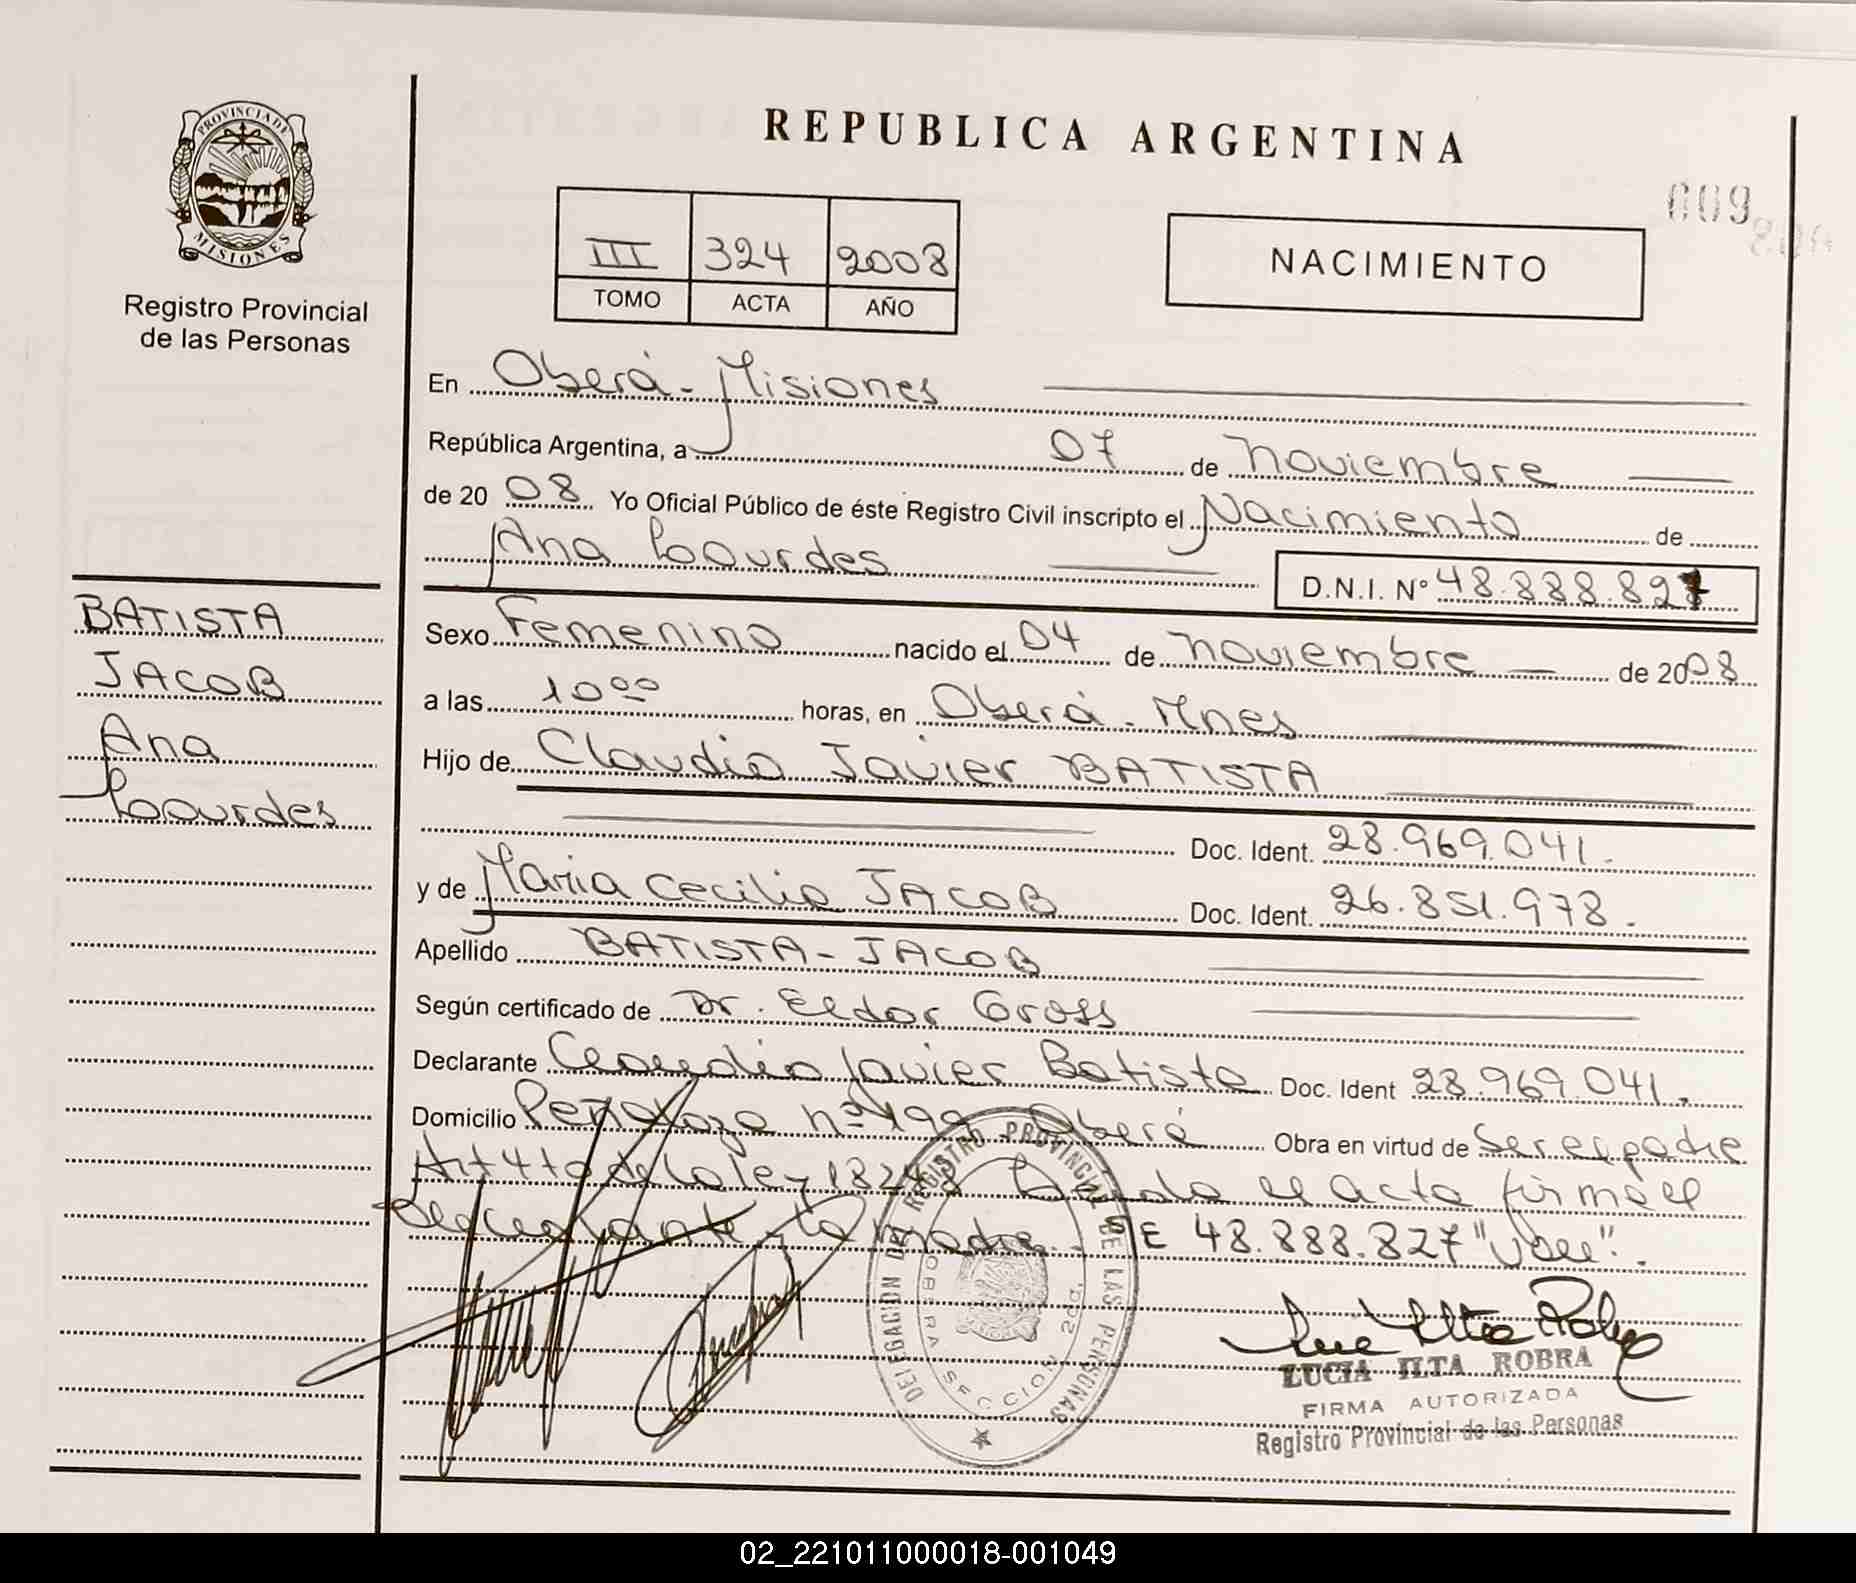 REPUBLICA ARGENTINA
PROVINCIA DE
MISIONES
Registro Provincial
de las Personas
009
III 324 2008
TOMO ACTA AÑO
NACIMIENTO
En Oberá - Misiones
República Argentina, a 07 de Noviembre
de 20 08 Yo Oficial Público de éste Registro Civil inscripto el Nacimiento de
Ana Lourdes D.N.I. Nº 48.888.827
BATISTA
JACOB
Ana
Lourdes
Sexo Femenino nacido el 04 de Noviembre de 2008
a las 10 00 horas, en Oberá - Mnes
Hijo de Claudio Javier BATISTA
Doc. Ident. 28.969.041.
y de Maria Cecilia JACOB Doc. Ident. 26.851.978.
Apellido BATISTA - JACOB
Según certificado de Dr. Eldor Gross
Declarante Claudio Javier Batista Doc. Ident 28.969.041.
Domicilio Peñaloza nº 199 Oberá Obra en virtud de Ser el padre
Art 4to de la ley 18248 Leida el acta firma el
declarante la madre. SE 48.888.827 "Vale".
DELEGACION DEL REGISTRO PROVINCIAL DE LAS PERSONAS
OBERA SECCION 2da.
LUCIA ILTA ROBRA
FIRMA AUTORIZADA
Registro Provincial de las Personas
02_221011000018-001049